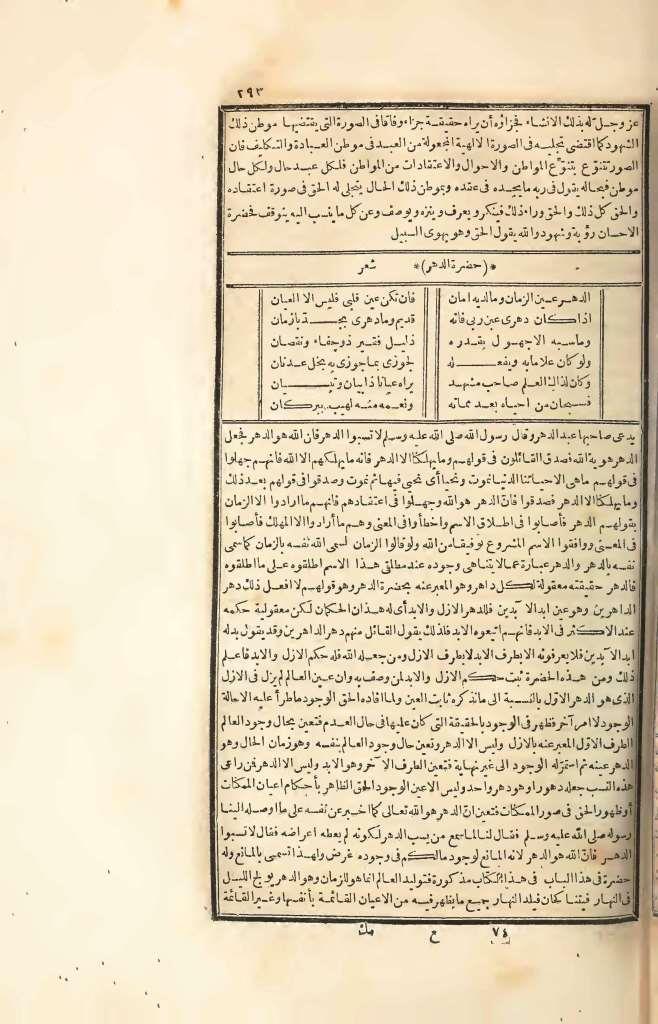 ٢٩٣
عز وجل له بذلك الانشاء فجزاؤه أن يراه حقيقة جزاء وفاقا فى الصورة التى يقتضيها موطن ذلك
الشهود كما اقتضى تجليه فى الصورة الالهية المجعولة من العبد فى موطن العبادة والتكليف فان
الصور تتنوّع بتنوّع المواطن والاحوال والاعتقادات من المواطن فلكل عبد حال ولكل حال
موطن فبحاله يقول فى ربه ما يجده فى عقده وبموطن ذلك الحال يتجلى له الحق فى صورة اعتقاده
والحق كل ذلك والحق وراء ذلك فينكر ويعرف وينزه ويوصف وعن كل ما ينسب اليه يتوقف فحضرة
الاحسان رؤية وشهود والله يقول الحق وهو يهدى السبيل
*(حضرة الدهر)* شعر
الدهر عين الزمان وما لديه امان فان تكن عين قلبى فليس الا العيان
اذا كان دهرى عين ربى فانه قديم وما دهرى يحد بازمان
وما سبه الاجهول بقدره ذليل فقير ذو جفاء ونقصان
ولو كان علاما به وبفعله لجوزى بما جوزى به نجل عدنان
وكان لذاك العلم صاحب مشهد يراه عيانا ذا بيان وتبيان
فسبحان من احياه بعد مماته ونعمه منه لهيب ببركان
يدعى صاحبها عبد الدهر وقال رسول الله صلى الله عليه وسلم لا تسبوا الدهر فان الله هو الدهر فجعل
الدهر هوية الله فصدق القائلون فى قولهم وما يهلكنا الا الدهر فانه ما يهلكهم الا الله فانهم جهلوا
فى قولهم ما هى الا حياتنا الدنيا نموت ونحيا أى نحيى فيها ثم نموت وصدقوا فى قولهم بعد ذلك
وما يهلكنا الا الدهر فصدقوا فانّ الدهر هو الله وجهلوا فى اعتقادهم فانهم ما ارادوا الا الزمان
بقولهم الدهر فأصابوا فى اطلاق الاسم واخطأوا فى المعنى وهم ما أرادوا الا المهلك فأصابوا
فى المعنى ووافقوا الاسم المشروع توفيقا من الله ولو قالوا الزمان لسمى الله نفسه بالزمان كما سمى
نفسه بالدهر والدهر عبارة عما لا يتناهى وجوده عند مطلقى هذا الاسم اطلقوه على ما اطلقوه
فالدهر حقيقته معقولة لكل داهر وهو المعبر عنه بحضرة الدهر وهو قولهم لا افعل ذلك دهر
الداهرين وهو عين ابد الآبدين فللدهر الازل والابد أى له هذان الحكمان لكن معقولية حكمه
عند الاكثر فى الابد فانهم اتبعوه الابد فلذلك يقول القائل منهم دهر الداهرين وقد يقول بدله
ابد الآبدين فلا يعرفونه الا بطرف الابد لا بطرف الازل ومن جعله الله فله حكم الازل والابد فاعلم
ذلك ومن هذه الحضرة ثبت حكم الازل والابد لمن وصف به وان عين العالم لم يزل فى الازل
الذى هو الدهر الاوّل بالنسبة الى ما نذكره ثابت العين ولما افاده الحق الوجود ما طرأ عليه الا حالة
الوجود لا امر آخر فظهر فى الوجود بالحقيقة التى كان عليها فى حال العدم فتعين بحال وجود العالم
الطرف الاوّل المعبر عنه بالازل وليس الا الدهر وتعين حال وجود العالم بنفسه وهو زمان الحال وهو
الدهر عينه ثم استمرّ له الوجود الى غير نهاية فتعين الطرف الآخر وهو الابد وليس الا الدهر فمن راعى
هذه النسب جعله دهورا وهو دهر واحد وليس الا عين الوجود الحق الظاهر بأحكام اعيان الممكنات
أو ظهور الحق فى صور الممكنات فتعين انّ الدهر هو الله تعالى كما اخبر عن نفسه على ما اوصله الينا
رسوله صلى الله عليه وسلم فقال لنا لما سمع من يسب الدهر لكونه لم يعطه اعراضه فقال لا تسبوا
الدهر فانّ الله هو الدهر لانه المانع لوجود ما لكم فى وجوده غرض ولهذا تسمى بالمانع وله
حضرة فى هذا الباب فى هذا الكتاب مذكورة فتوليد العالم انما هو للزمان وهو الدهر يولج الليل
فى النهار فيتناكحان فيلد النهار جميع ما يظهر فيه من الاعيان القائمة بأنفسها وغير القائمة
٧٤ ع مك